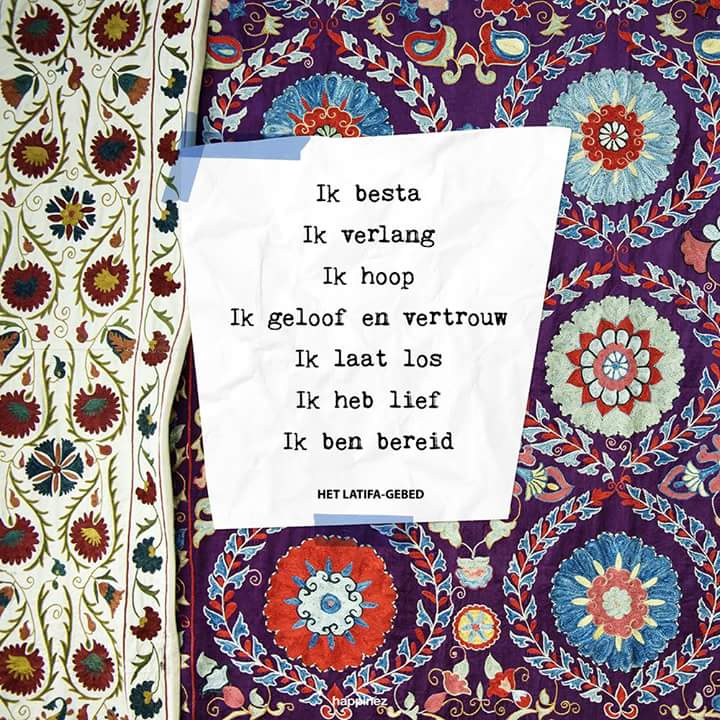 Ik besta
Ik verlang
Ik hoop
Ik geloof en vertrouw
Ik laat los
Ik heb lief
Ik ben bereid
HET LATIFA-GEBED
happinez